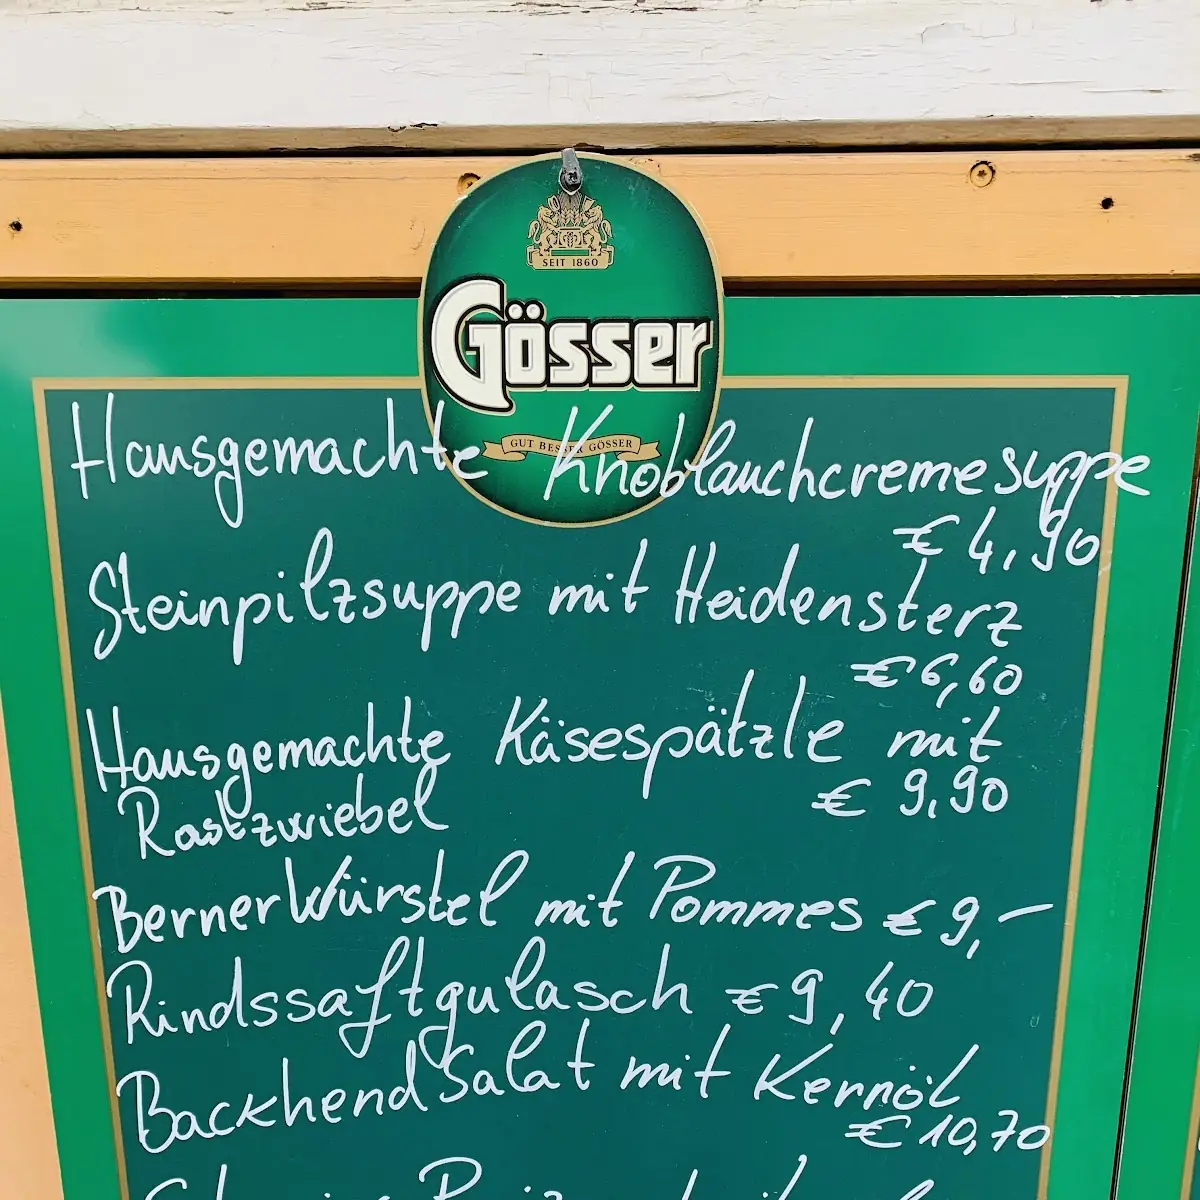 SEIT 1860
Gösser
GUT BESSER GÖSSER
Hausgemachte Knoblauchcremesuppe
€ 4,90
Steinpilzsuppe mit Heidensterz
€ 6,60
Hausgemachte Käsespätzle mit
Rastzwiebel € 9,90
Berner Würstel mit Pommes € 9,–
Rindssaftgulasch € 9,40
Backhendlsalat mit Kernöl
€ 10,70